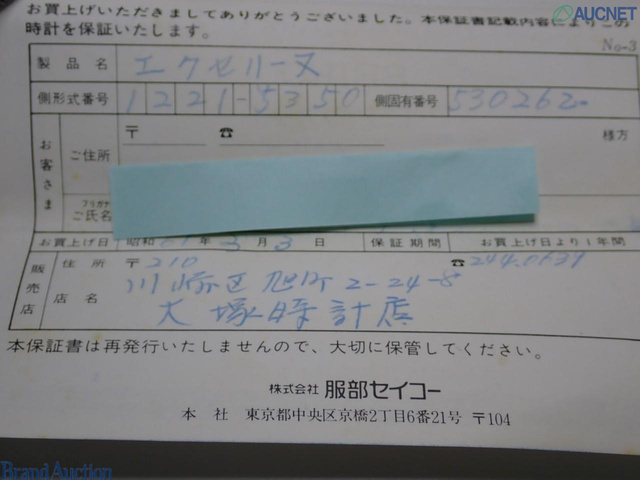 お買上げいただきましてありがとうございました。本保証書記載内容によりこの
時計を保証いたします。
AUCNET
No-3
製品名 エクセリーヌ
側形式番号 1221-5350 側固有番号 530262
お客さま
ご住所 〒 ☎ 様方
フリガナ
ご氏名
お買上げ日 昭和 61年 3月3日 保証期間 お買上げ日より1年間
販売店
住所 〒210 ☎244.0639
川崎区旭町2-24-8
店名 大塚時計店
本保証書は再発行いたしませんので、大切に保管してください。
株式会社 服部セイコー
本社 東京都中央区京橋2丁目6番21号 〒104
Brand Auction